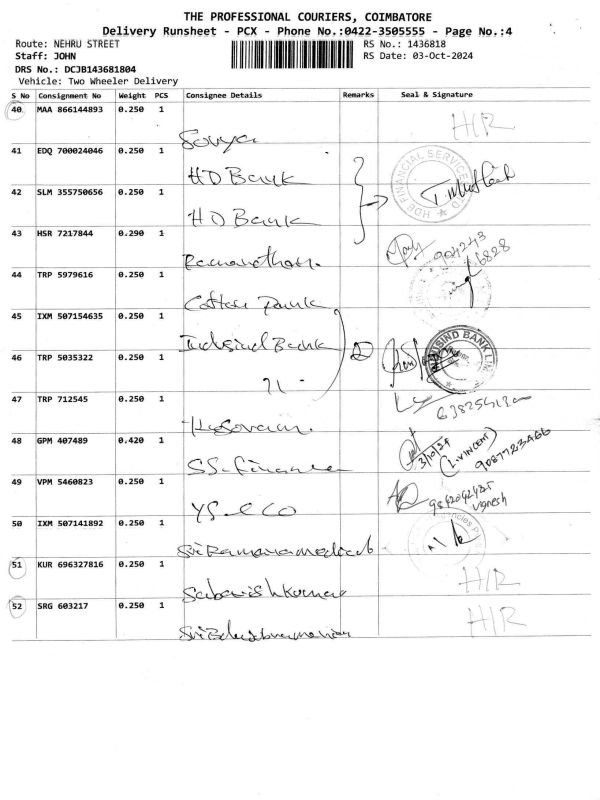 THE PROFESSIONAL COURIERS, COIMBATORE
Delivery Runsheet - PCX - Phone No.:0422-3505555 - Page No.:4
Route: NEHRU STREET RS No.: 1436818
Staff: JOHN RS Date: 03-Oct-2024
DRS No.: DCJB143681804
Vehicle: Two Wheeler Delivery
S No Consignment No Weight PCS Consignee Details Remarks Seal & Signature
40 MAA 866144893 0.250 1
Sowya H/R
41 EDQ 700024046 0.250 1
HD Bank
42 SLM 355750656 0.250 1
HD Bank
43 HSR 7217844 0.290 1
Ramanathan.
44 TRP 5979616 0.250 1
Cotton Park
45 IXM 507154635 0.250 1
Indusind Bank
46 TRP 5035322 0.250 1
47 TRP 712545 0.250 1
48 GPM 407489 0.420 1
SS-finance 3/10/24 (L.VINCENT)
49 VPM 5460823 0.250 1
YS & CO Vignesh
50 IXM 507141892 0.250 1
Sri Ramana medicals
51 KUR 696327816 0.250 1
Sabarish Kumar H/R
52 SRG 603217 0.250 1
Sri Balasubramanian H/R